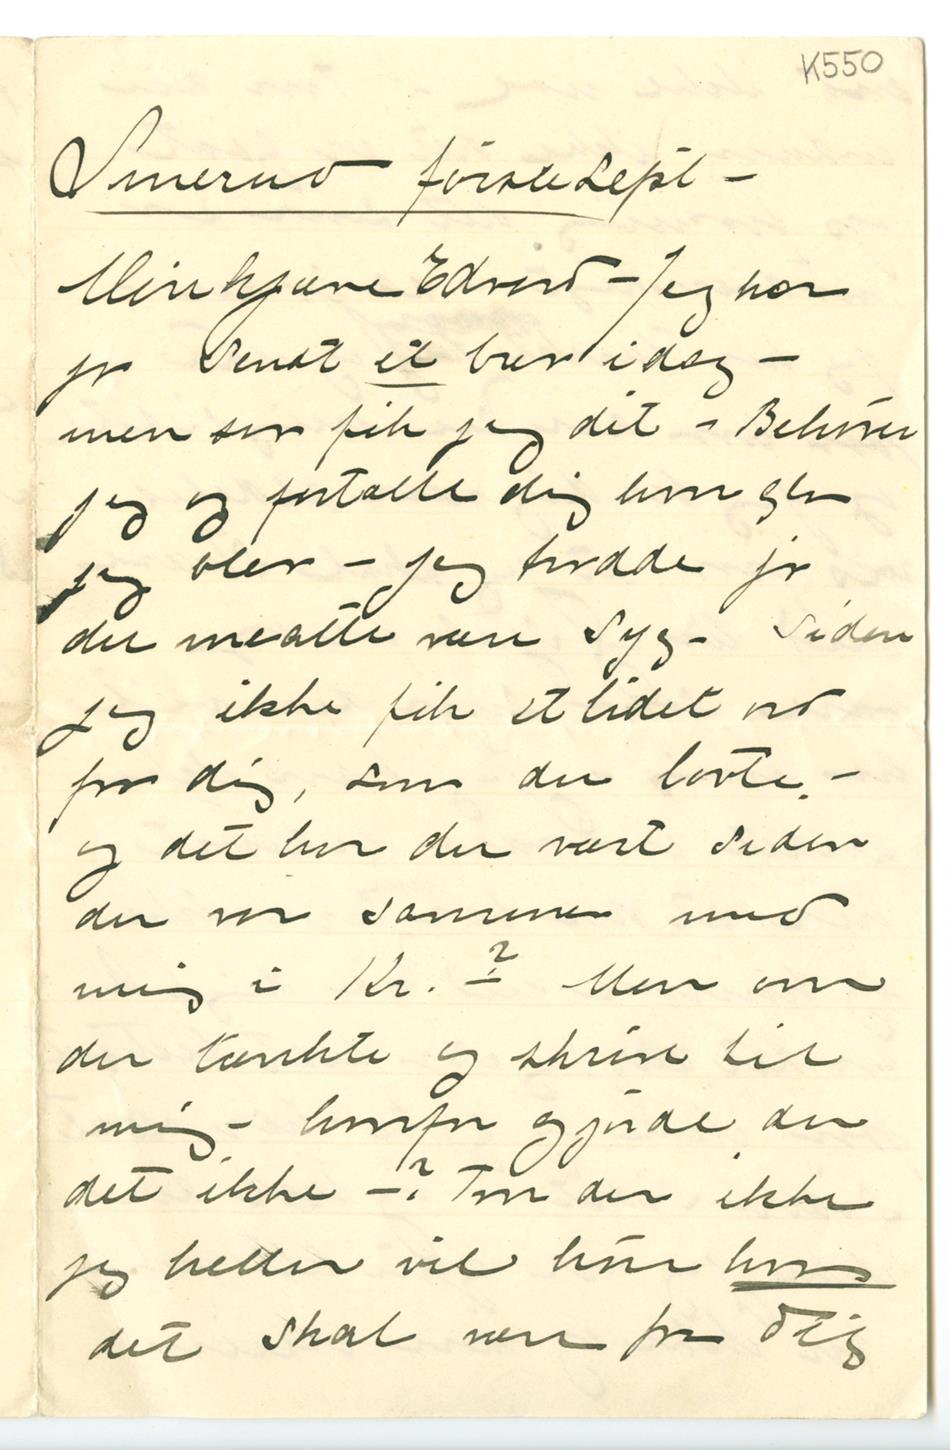 K550
Smerud første Sept –
Min kjære Edvard – Jeg har
jo sendt et brev idag –
men saa fik jeg dit – Behøver
jeg og fortælle dig hvor glad
jeg blev – jeg trodde jo
du maatte være syg – siden
jeg ikke fik et lidet ord
fra dig, som du lovte. –
og det har du vært siden
du var sammen med
mig i Kr. –? Men om
du tænkte og skrive til
mig – hvorfor gjørde du
det ikke –? Tror du ikke
jeg heller vil høre hvad
det skal være fra dig